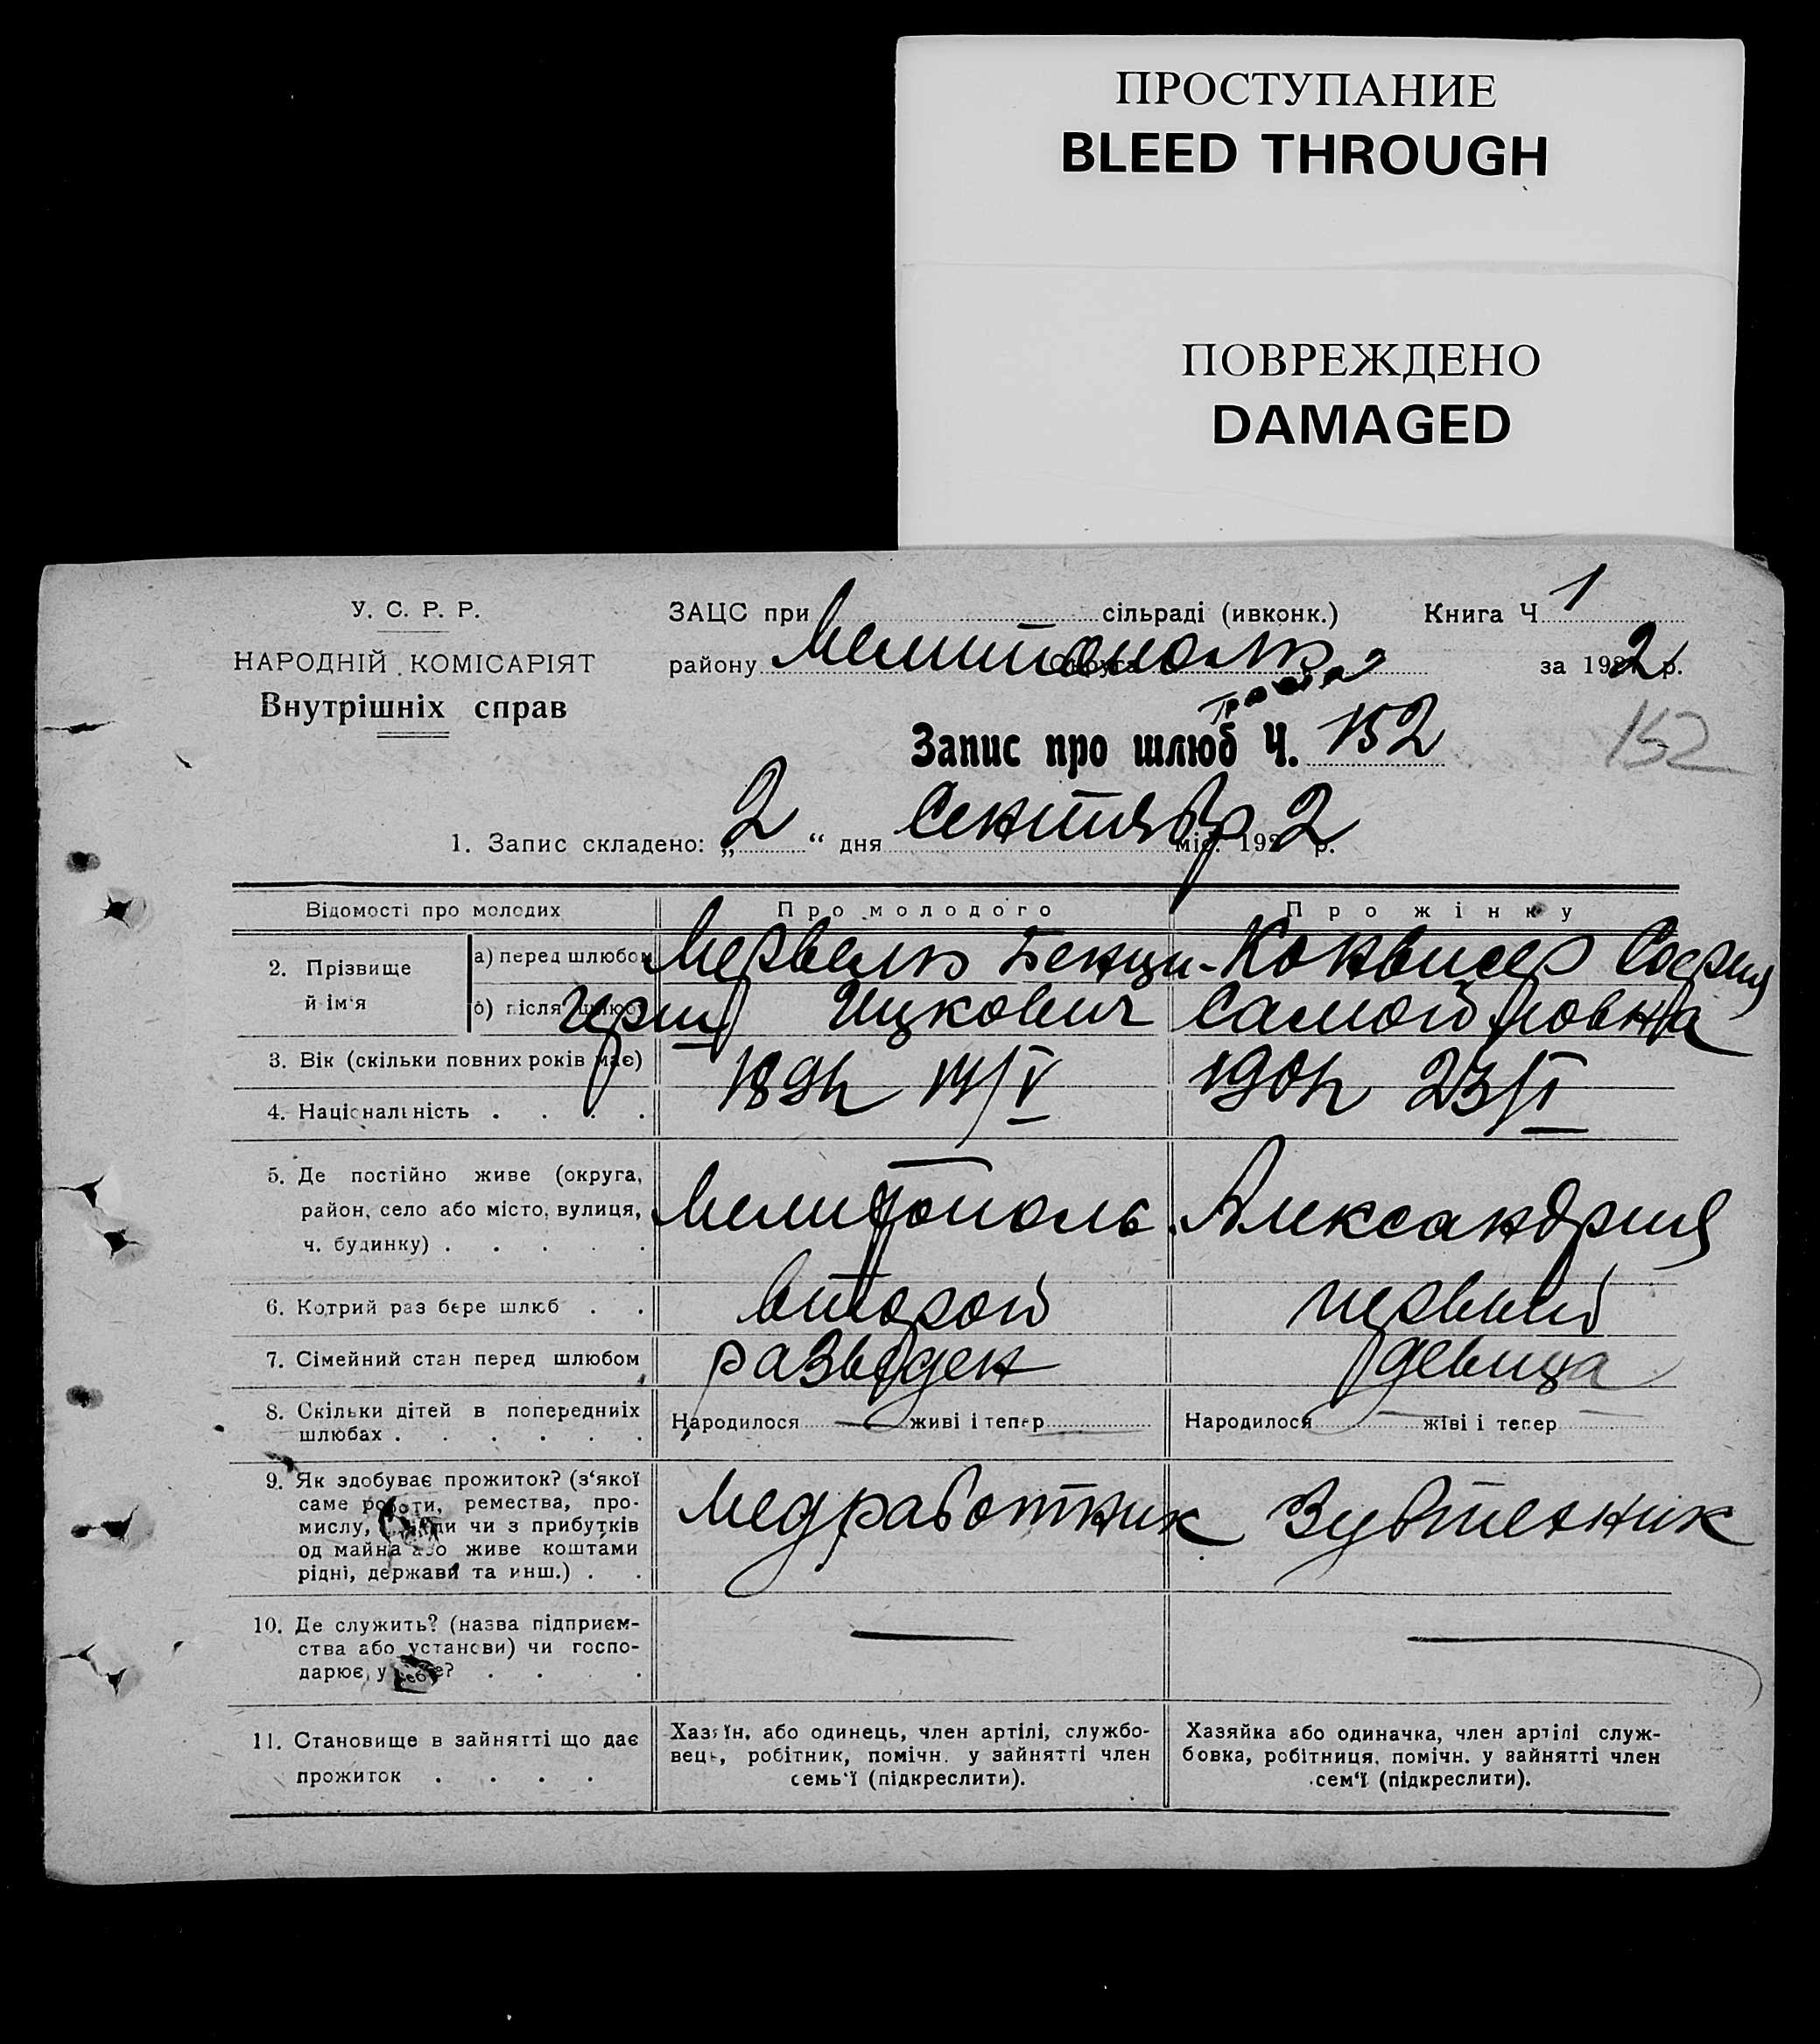 ПРОСТУПАНИЕ
BLEED THROUGH
ПОВРЕЖДЕНО
DAMAGED
У. С. Р. Р.
НАРОДНІЙ КОМІСАРІЯТ
Внутрішніх справ
ЗАЦС при сільраді (ивконк.) Книга Ч 1
району Мелитополь за 192 2 р.
Запис про шлюб Ч. 152
152
1. Запис складено: „ 2 “ дня Сентябр міс. 192 2 р.
Відомості про молодих
Про молодого
Про жінку
2. Прізвище й ім'я
а) перед шлюбом
б) після шлюбу
Мервель Бенци-
Герш Ицкович
София
Самойловна
3. Вік (скільки повних років має)
14/V
23/I
4. Національність . . . .
5. Де постійно живе (округа,
район, село або місто, вулиця,
ч. будинку) . . . . .
Мелитополь
Александрия
6. Котрий раз бере шлюб . .
второй
первый
7. Сімейний стан перед шлюбом
разведен
девица
8. Скільки дітей в попередниіх
шлюбах . . . . . .
Народилося — живі і тепер
Народилося — живі і тепер
9. Як здобуває прожиток? (з'якої
саме роботи, ремества, про-
мислу, чи з прибутків
од майна або живе коштами
рідні, держави та инш.) . .
Медработник
Зубтехник
10. Де служить? (назва підприєм-
ства або установи) чи госпо-
дарює у себе? . . .
—
—
11. Становище в зайнятті що дає
прожиток . . . .
Хазяїн, або одинець, член артілі, службо-
вець, робітник, помічн. у зайнятті член
семь'ї (підкреслити).
Хазяйка або одиначка, член артілі служ-
бовка, робітниця, помічн. у зайнятті член
сем'ї (підкреслити).